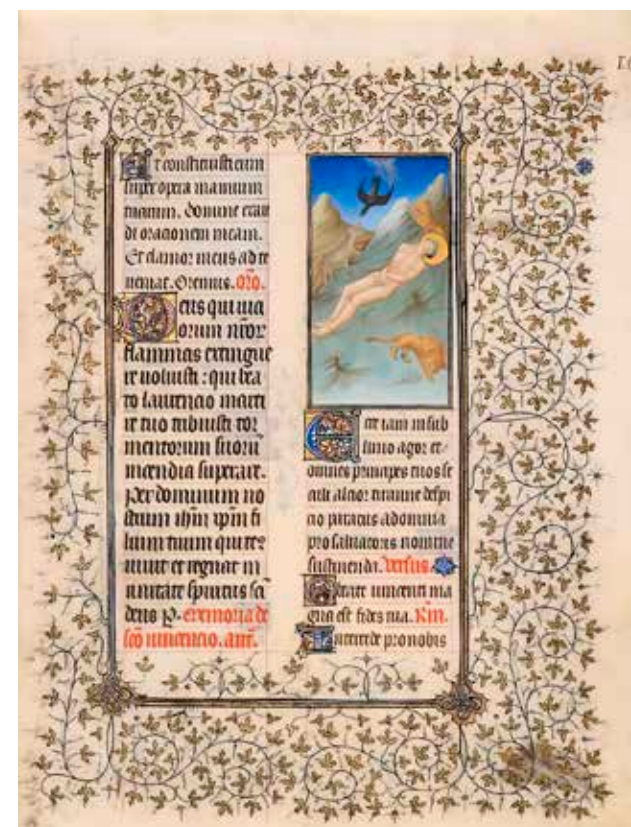 Et constituisti eum
super opera manuum
tuarum. Domine exau
di orationem meam.
Et clamor meus ad te
ueniat. Oremus. oro.
Deus qui uia
orum nror
flammas extingue
re uoluisti : qui bea
to laurencio marti
re tuo tribuisti tor
mentorum suorū
incendia superare.
Per dominum no
strum ihm xpm fi
lium tuum qui tec
uiuit et regnat in
unitate spiritus sci
deus p. Memoria de
sco uincencio. ant.
Ecce iam in sub
limo agor et
omnes principes tuos se
culi altior tiranne despi
cio
pro saluatores nomine
sustinenda. versus
uincenti ma
gna est fides tua. Rm.
Intercede pro nobis